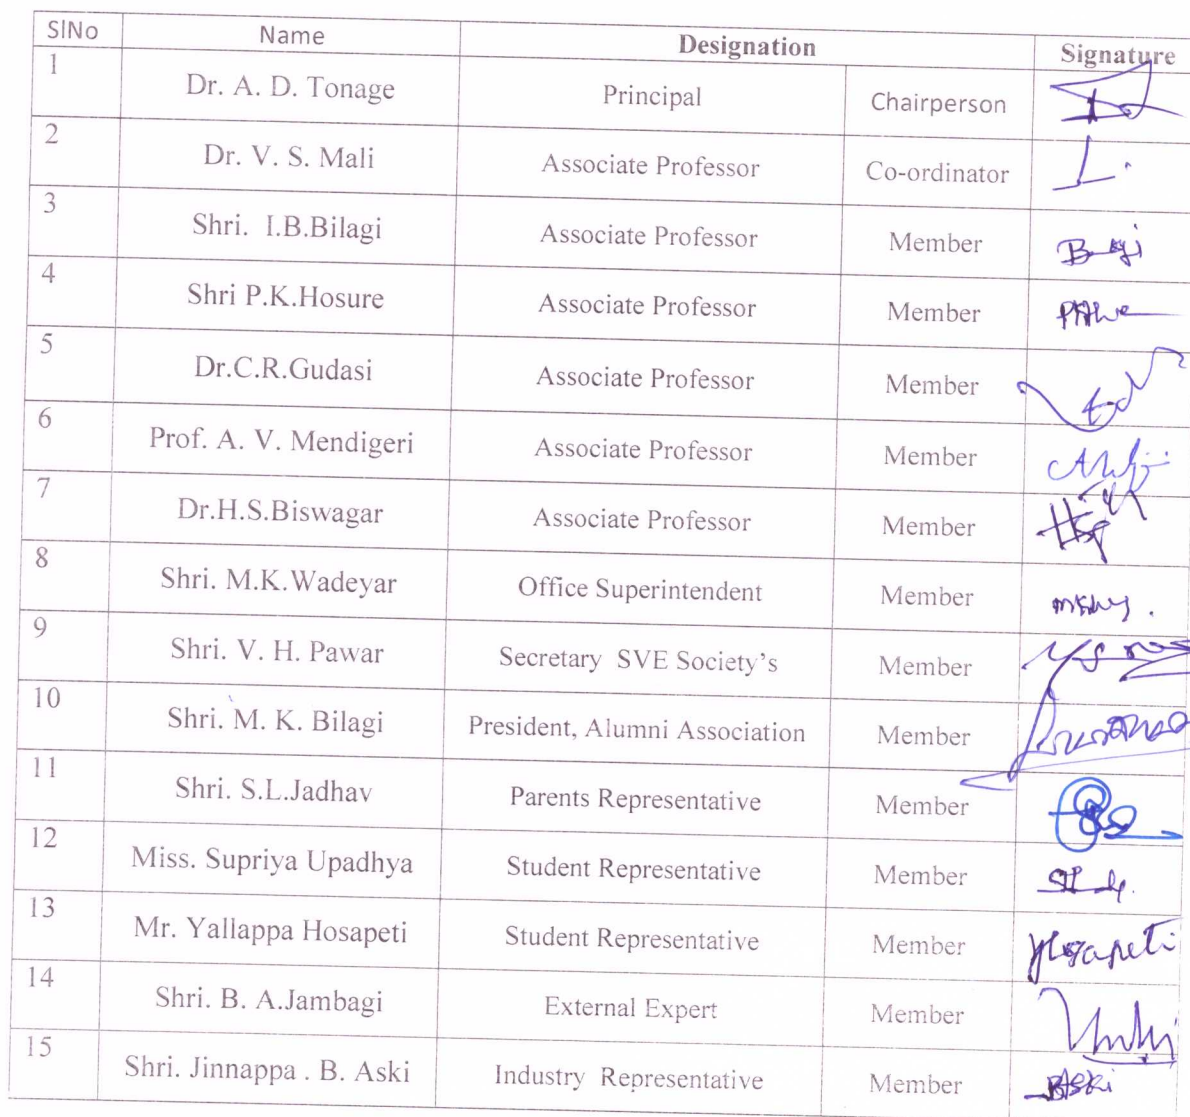 SlNo Name Designation Signature
1 Dr. A. D. Tonage Principal Chairperson
2 Dr. V. S. Mali Associate Professor Co-ordinator
3 Shri. I.B.Bilagi Associate Professor Member
4 Shri P.K.Hosure Associate Professor Member
5 Dr.C.R.Gudasi Associate Professor Member
6 Prof. A. V. Mendigeri Associate Professor Member
7 Dr.H.S.Biswagar Associate Professor Member
8 Shri. M.K.Wadeyar Office Superintendent Member
9 Shri. V. H. Pawar Secretary SVE Society's Member
10 Shri. M. K. Bilagi President, Alumni Association Member
11 Shri. S.L.Jadhav Parents Representative Member
12 Miss. Supriya Upadhya Student Representative Member
13 Mr. Yallappa Hosapeti Student Representative Member Yhosapeti
14 Shri. B. A.Jambagi External Expert Member
15 Shri. Jinnappa . B. Aski Industry Representative Member JBAski